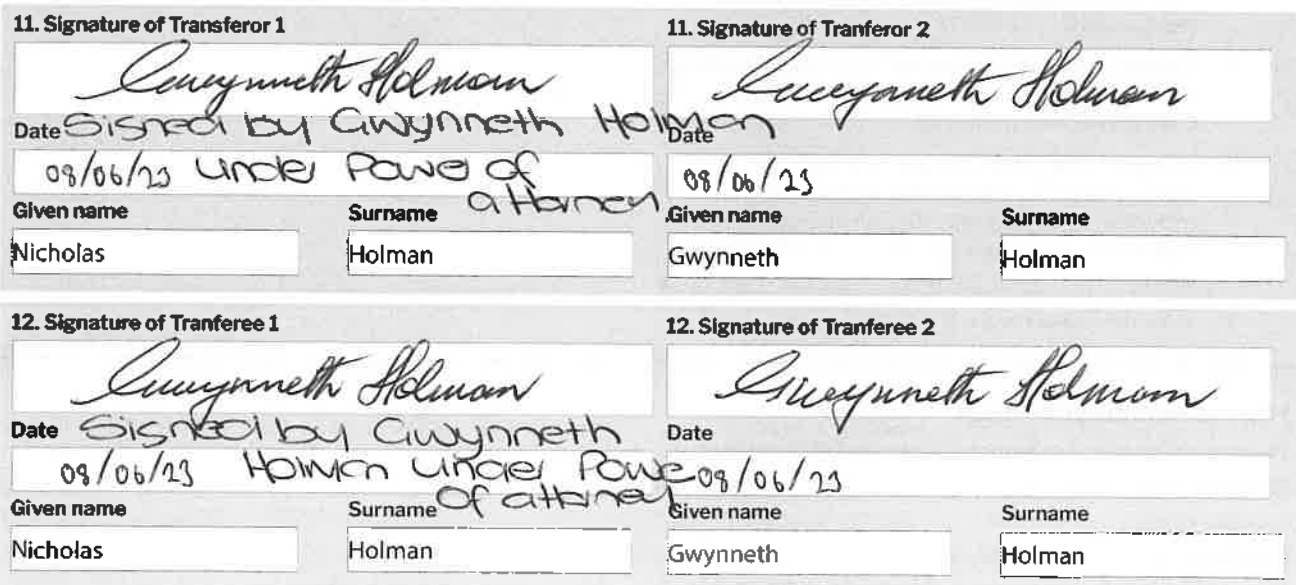 11. Signature of Transferor 1
Gwynneth Holman
Date Signed by Gwynneth Holman
08/06/23 under Power of
attorney
Given name Surname
Nicholas Holman
11. Signature of Tranferor 2
Gwynneth Holman
Date
08/06/23
Given name Surname
Gwynneth Holman
12. Signature of Tranferee 1
Gwynneth Holman
Date Signed by Gwynneth
08/06/23 Holman under Powe
Of attorney
Given name Surname
Nicholas Holman
12. Signature of Tranferee 2
Gwynneth Holman
Date
08/06/23
Given name Surname
Gwynneth Holman